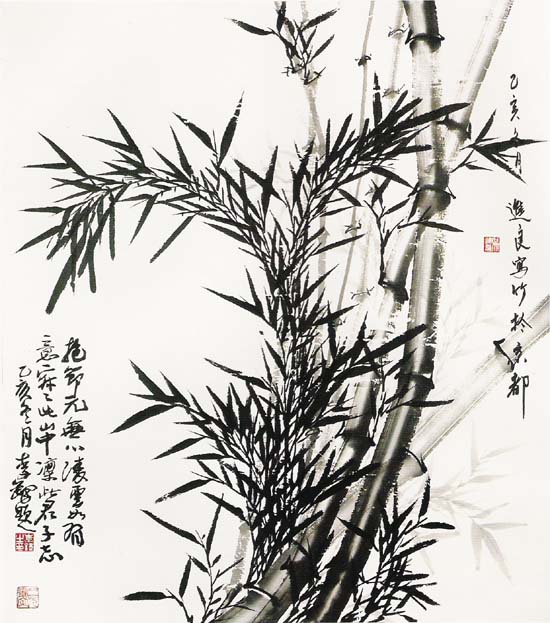 乙亥冬月
進良寫竹於京都
抱節元無心凌雲如有
意寂々此山中凜此君子志
乙亥冬月李鐸題